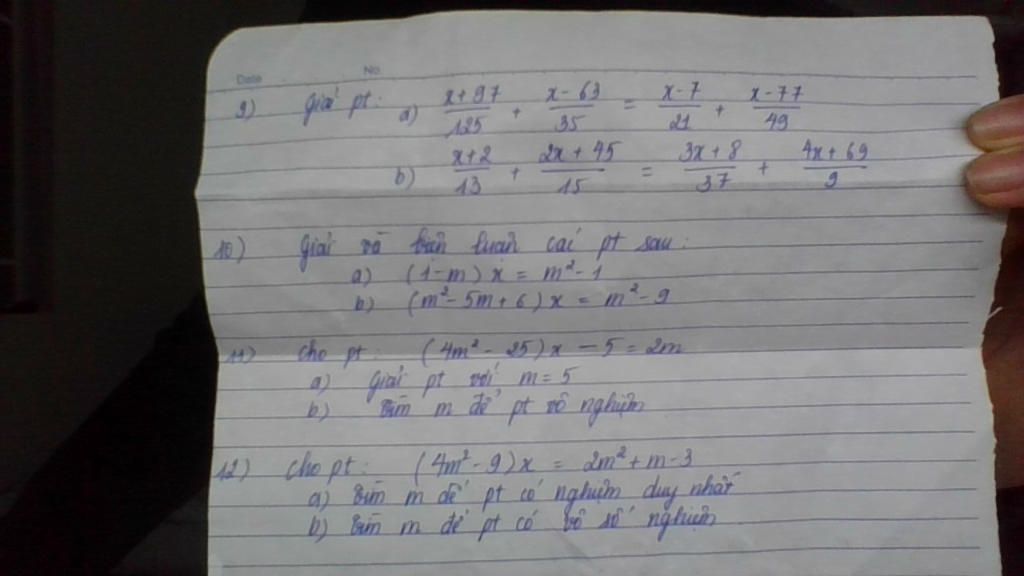 Date No
9) Giải pt: a) x+97/125 + x-63/35 = x-7/21 + x-77/49
b) x+2/13 + 2x+45/15 = 3x+8/37 + 4x+69/9
10) Giải và biện luận các pt sau:
a) (1-m)x = m²-1
b) (m²-5m+6)x = m²-9
11) Cho pt: (4m²-25)x-5=2m
a) Giải pt với m=5
b) Tìm m để pt vô nghiệm
12) Cho pt: (4m²-9)x = 2m²+m-3
a) Tìm m để pt có nghiệm duy nhất
b) Tìm m để pt có vô số nghiệm